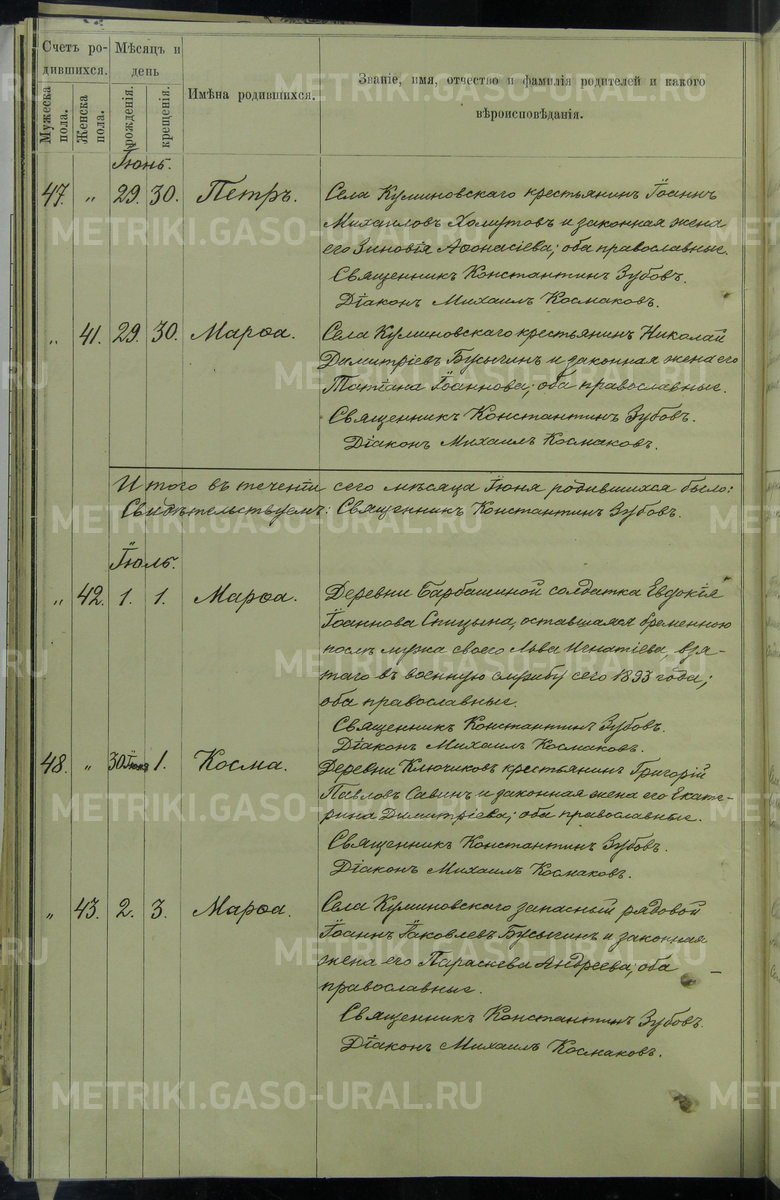 Счетъ ро-
дившихся.
Мѣсяцъ и
день
Имѣна родившихся.
Званіе, имя, отчество и фамилія родителей и какого
вѣроисповѣданія.
Мужеска
пола.
Женска
пола.
рожденія.
крещенія.
Іюнь.
47. „ 29. 30. Петръ. Села Куминовскаго крестьянинъ Іоаннъ
Михаиловъ Хомутовъ и законная жена
его Зиновія Аѳонасіева; оба православные.
Священникъ Константинъ Зубовъ.
Діаконъ Михаилъ Космаковъ.
„ 41. 29. 30. Марѳа. Села Куминовскаго крестьянинъ Николай
Димитріевъ Бусыгинъ и законная жена его
Татіана Іоаннова; оба православные.
Священникъ Константинъ Зубовъ.
Діаконъ Михаилъ Космаковъ.
Итого въ теченіи сего мѣсяца Іюня родившихся было:
Свидѣтельствуемъ: Священникъ Константинъ Зубовъ.
Іюль.
„ 42. 1. 1. Марѳа. Деревни Барбашиной солдатка Евдокія
Іоаннова Спицына, оставшаяся беременною
послѣ мужа своего Льва Игнатіева, взя-
таго въ военную службу сего 1893 года;
оба православные.
Священникъ Константинъ Зубовъ.
Діаконъ Михаилъ Космаковъ.
48. „ 30 Іюня 1. Косма. Деревни Ключиковъ крестьянинъ Григорій
Павловъ Савинъ и законная жена его Екате-
рина Димитріева; оба православные.
Священникъ Константинъ Зубовъ.
Діаконъ Михаилъ Космаковъ.
„ 43. 2. 3. Марѳа. Села Куминовскаго запасный рядовой
Іоаннъ Іаковлевъ Бусыгинъ и законная
жена его Параскева Андреева; оба
православные.
Священникъ Константинъ Зубовъ.
Діаконъ Михаилъ Космаковъ.
METRIKI.GASO-URAL.RU